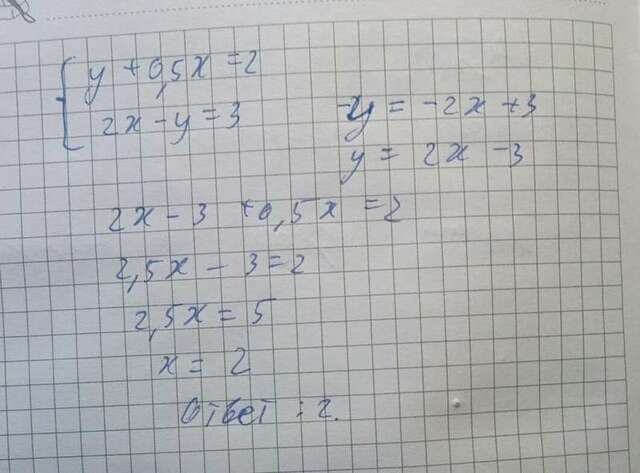 y + 0,5x = 2
2x - y = 3
-y = -2x + 3
y = 2x - 3
2x - 3 + 0,5x = 2
2,5x - 3 = 2
2,5x = 5
x = 2
Ответ : 2.